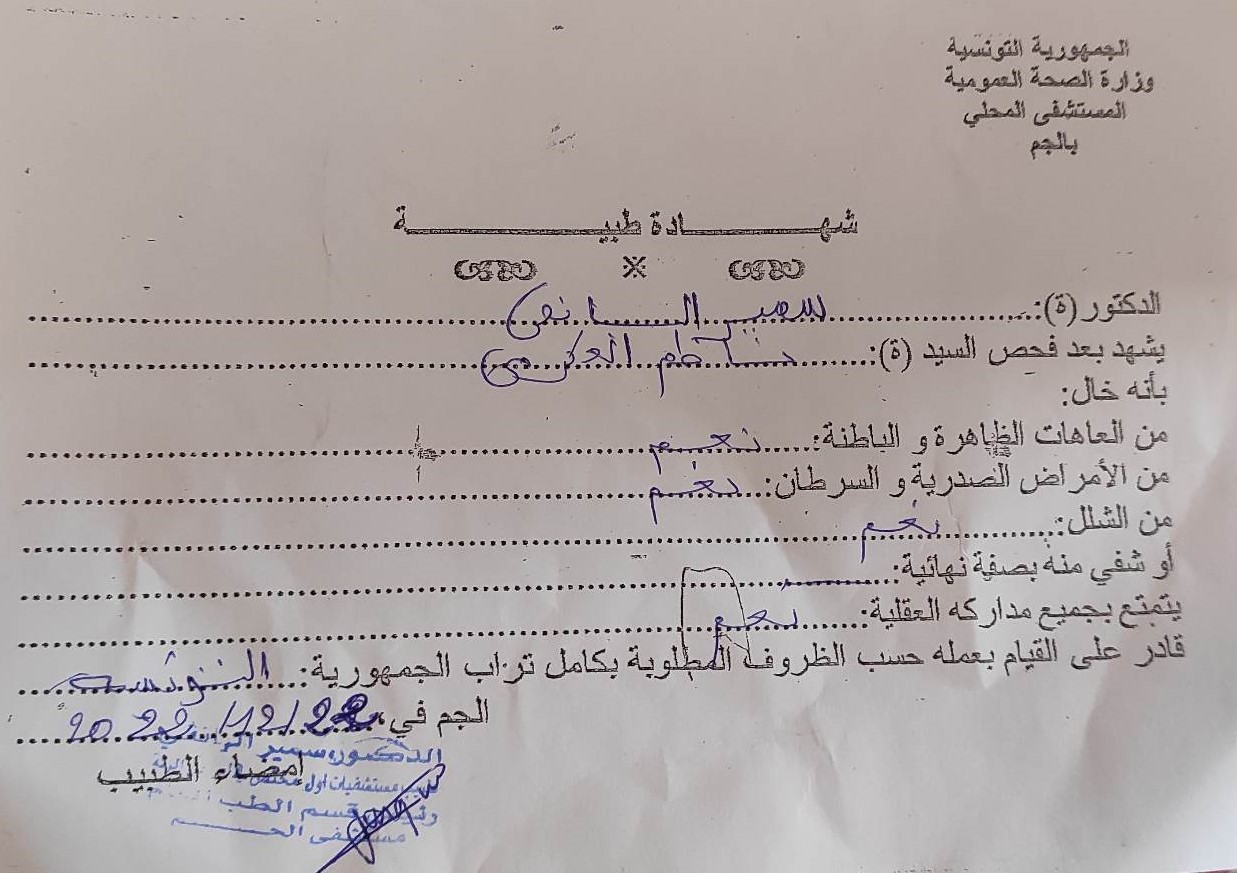 الجمهورية التونسية
وزارة الصحة العمومية
المستشفى المحلي
بالجم
شهــــــــادة طبيــــــــة
الدكتور (ة): سمير
يشهد بعد فحص السيد (ة):
بأنه خال:
من العاهات الظاهرة و الباطنة: نعم
من الأمراض الصدرية و السرطان: نعم
من الشلل: نعم
أو شفي منه بصفة نهائية:
يتمتع بجميع مداركه العقلية: نعم
قادر على القيام بعمله حسب الظروف المطلوبة بكامل تراب الجمهورية: التونسية
الجم في، 22/12/2022
الدكتور سمير
إمضاء الطبيب
مستشفيات أول
قسم الطب
مستشفى الجم